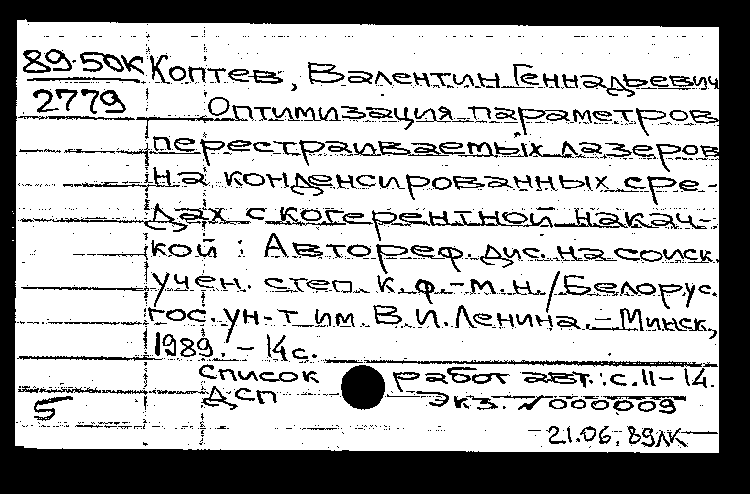 89-50К Коптев, Валентин Геннадьевич
2779 Оптимизация параметров
перестраиваемых лазеров
на конденсированных сре-
дах с когерентной накач-
кой : Автореф. дис. на соиск.
учен. степ. к. ф.-м. н. / Белорус.
гос. ун-т им. В. И. Ленина. - Минск,
1989. - 14 с.
Список работ авт.: с. 11-14.
5 ДСП Экз. N 000009
21.06.89ЛК